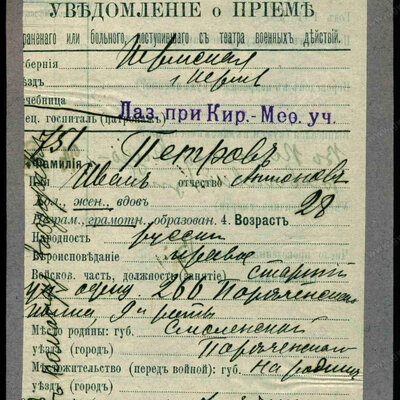 УВѢДОМЛЕНІЕ о ПРІЕМѢ
раненаго или больного, поступившаго съ театра военныхъ дѣйствій.
губернія Пермская
ѣздъ г. Пермь
лечебница
ец. госпиталь Лаз. при Кир.-Меѳ. уч.
751
Фамилія Петровъ
Имя Иванъ отчество Антоновъ
жен., вдовъ
грам., грамотн., образован. 4. Возрастъ 28
Народность русскій
Вѣроисповѣданіе правос
Войсков. часть, должность (занятіе) старшій
унт офиц 266 Порѣченскаго
полка, 9 роты
Мѣсто родины: губ. Смоленской
уѣздъ (городъ) Порѣченскаго
Мѣстожительство (передъ войной): губ. на родинѣ
уѣздъ (городъ)